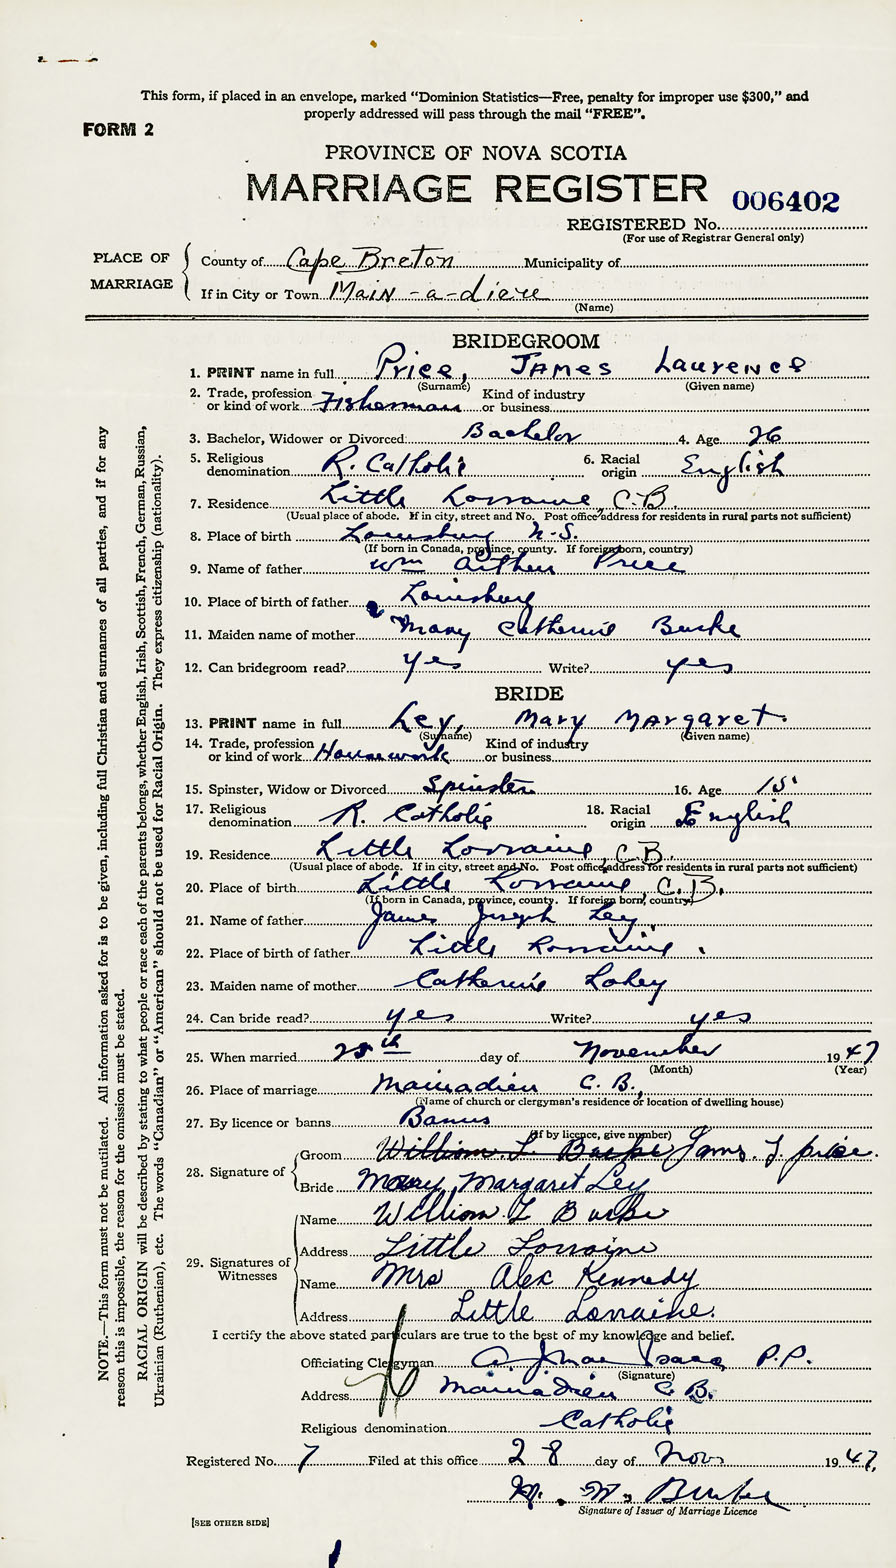 This form, if placed in an envelope, marked “Dominion Statistics—Free, penalty for improper use $300,” and
properly addressed will pass through the mail “FREE”.
FORM 2
PROVINCE OF NOVA SCOTIA
MARRIAGE REGISTER 006402
REGISTERED No.
(For use of Registrar General only)
PLACE OF MARRIAGE
County of Cape Breton Municipality of
If in City or Town Main-a-dieu
(Name)
BRIDEGROOM
1. PRINT name in full Price, James Laurence
(Surname) (Given name)
2. Trade, profession or kind of work Fisherman Kind of industry or business
3. Bachelor, Widower or Divorced Bachelor 4. Age 26
5. Religious denomination R. Catholic 6. Racial origin English
7. Residence Little Lorraine, C.B.
(Usual place of abode. If in city, street and No. Post office address for residents in rural parts not sufficient)
8. Place of birth Louisburg N.S.
(If born in Canada, province, county. If foreign born, country)
9. Name of father Wm Arthur Price
10. Place of birth of father Louisburg
11. Maiden name of mother Mary Catherine Burke
12. Can bridegroom read? yes Write? yes
BRIDE
13. PRINT name in full Ley, Mary Margaret
(Surname) (Given name)
14. Trade, profession or kind of work Housework Kind of industry or business
15. Spinster, Widow or Divorced Spinster 16. Age 15
17. Religious denomination R. Catholic 18. Racial origin English
19. Residence Little Lorraine, C.B.
(Usual place of abode. If in city, street and No. Post office address for residents in rural parts not sufficient)
20. Place of birth Little Lorraine, C.B.
(If born in Canada, province, county. If foreign born, country)
21. Name of father James Joseph Ley
22. Place of birth of father Little Lorraine
23. Maiden name of mother Catherine Lahey
24. Can bride read? yes Write? yes
25. When married 25th day of November 1947
(Month) (Year)
26. Place of marriage Mainadieu C.B.
(Name of church or clergyman’s residence or location of dwelling house)
27. By licence or banns Banns
(If by licence, give number)
28. Signature of
Groom William L. Burke James L price
Bride Mary Margaret Ley
29. Signatures of Witnesses
Name William L Burke
Address Little Lorraine
Name Mrs Alex Kennedy
Address Little Lorraine
I certify the above stated particulars are true to the best of my knowledge and belief.
Officiating Clergyman P.P.
(Signature)
Address Mainadieu C.B.
Religious denomination Catholic
Registered No. 7 Filed at this office 28 day of Nov 1947
M. W. Burke
Signature of Issuer of Marriage Licence
[SEE OTHER SIDE]
NOTE.—This form must not be mutilated. All information asked for is to be given, including full Christian and surnames of all parties, and if for any
reason this is impossible, the reason for the omission must be stated.
RACIAL ORIGIN will be described by stating to what people or race each of the parents belongs, whether English, Irish, Scottish, French, German, Russian,
Ukrainian (Ruthenian), etc. The words “Canadian” or “American” should not be used for Racial Origin. They express citizenship (nationality).